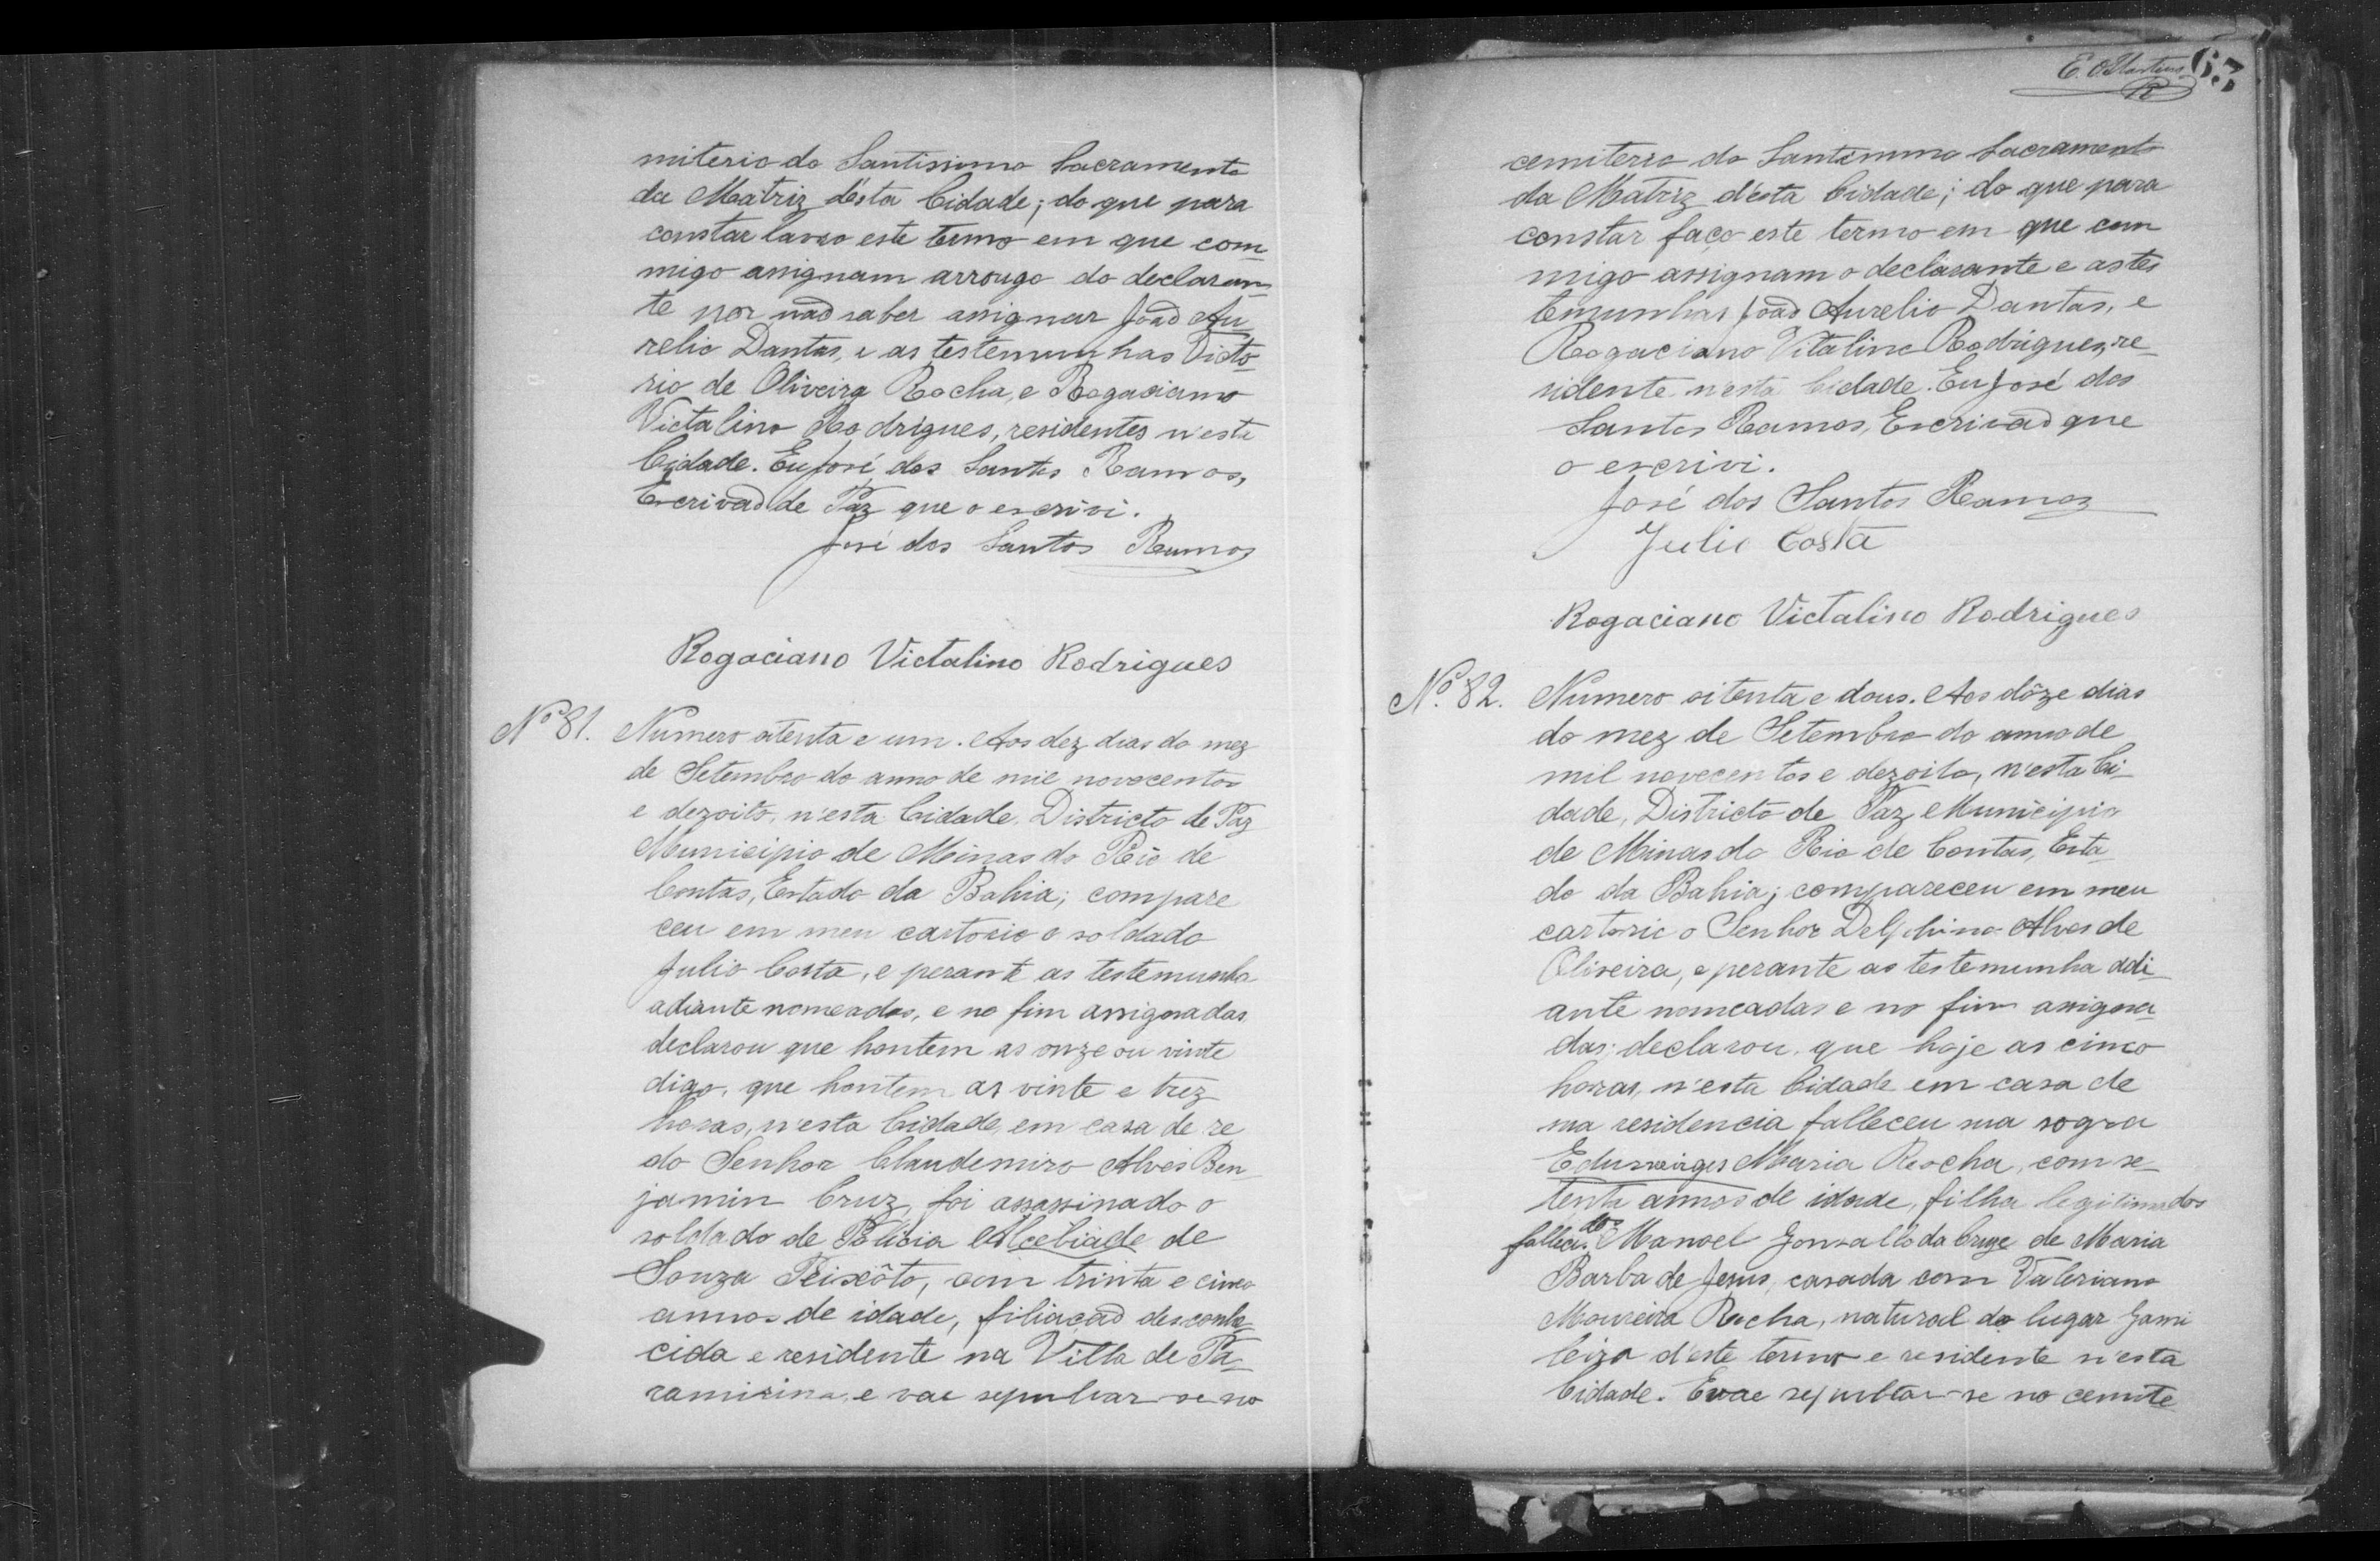 miterio do Santissimo Sacramento
da Matriz d'esta Cidade; do que para
constar lavro este termo em que com
migo assignam arrougo do declaran
te por não saber assignar João Au
relio Dantas, e as testemunhas Victo
rio de Oliveira Rocha, e Rogaciano
Victalino Rodrigues, residentes n'esta
Cidade. Eu José dos Santos Ramos,
Escrivão de Paz que o escrivi.
José dos Santos Ramos
Rogaciano Victalino Rodrigues
Nº 81. Numero oitenta e um. Aos dez dias do mez
de Setembro do anno de mil novecentos
e dezoito, n'esta Cidade, Districto de Paz
Municipio de Minas do Rio de
Contas, Estado da Bahia; compare
ceu em meu cartorio o soldado
Julio Costa, e perante as testemunha
adiante nomeadas, e no fim assignadas
declarou que hontem as onze ou vinte
digo, que hontem as vinte e trez
horas, n'esta Cidade, em casa de re
do Senhor Claudemiro Alves Ben
jamin Cruz, foi assassinado o
soldado de Policia Alcebiade de
Souza Peixôto, com trinta e cinco
annos de idade, filiação desconhe
cida e residente na Villa de Pa
ramirina, e vae sepulvar-se no
E. Martins 65
R
cemiterio do Santissimo Sacramento
da Matriz d'esta Cidade; do que para
constar faço este termo em que com
migo assignam o declarante e as tes
temunhas João Aurelio Dantas, e
Rogaciano Vitalino Rodrigues, re
sidente n'esta Cidade. Eu José dos
Santos Ramos, Escrivão que
o escrivi.
José dos Santos Ramos
Julio Costa
Rogaciano Victalino Rodrigues
Nº. 82. Numero oitenta e dous. Aos dôze dias
do mez de Setembro do anno de
mil novecentos e dezoito, n'esta Ci
dade, Districto de Paz, Municipio
de Minas do Rio de Contas, Esta
do da Bahia; compareceu em meu
cartorio o Senhor Delphino Alves de
Oliveira, e perante as testemunha adi
ante nomeadas e no fim assigna
das: declarou que hoje as cinco
horas, n'esta Cidade em casa de
sua residencia falleceu sua sogra
Eduwirges Maria Rocha, com se
tenta annos de idade, filha legitima dos
falleci.dos Manoel Gonsallo da Cruz e de Maria
Barba de Jesus, casada com Valeriano
Moureira Rocha, natural do lugar Gami
leira d'este termo e residente n'esta
Cidade. E vae sepultar-se no cemite